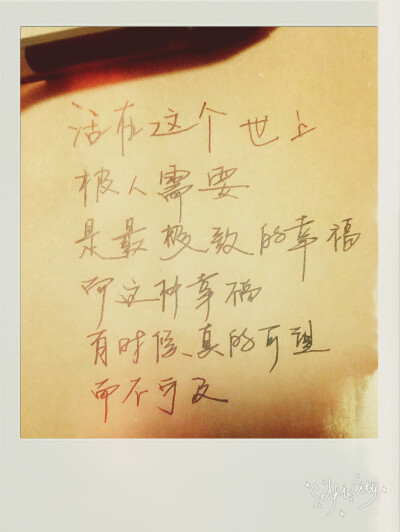 活在这个世上
被人需要
是最极致的幸福
而这种幸福
有时候、真的可望
而不可及